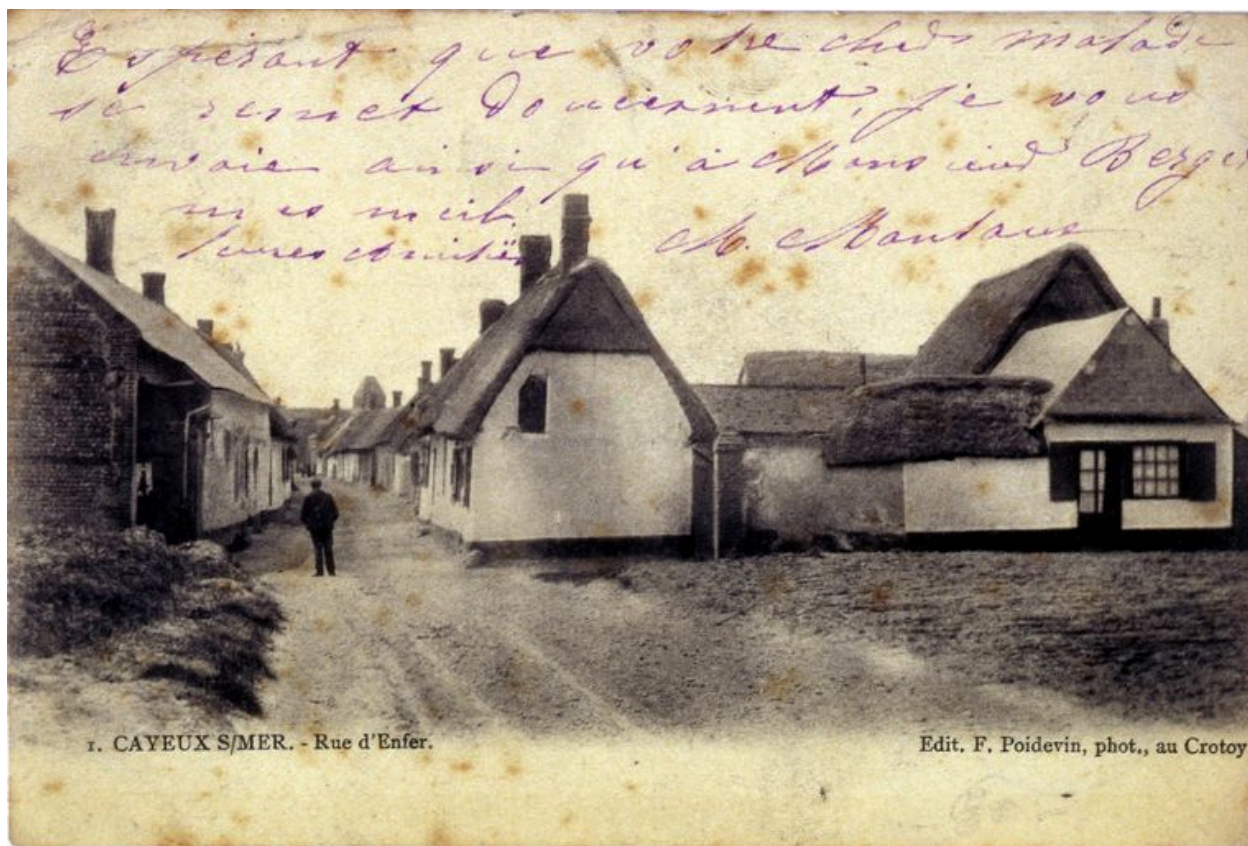 Espérant que votre cher malade
se remet doucement, je vous
envoie ainsi qu'à Monsieur Berger
mes meil
leures amitiés M.
1. CAYEUX S/MER. - Rue d'Enfer.
Edit. F. Poidevin, phot., au Crotoy